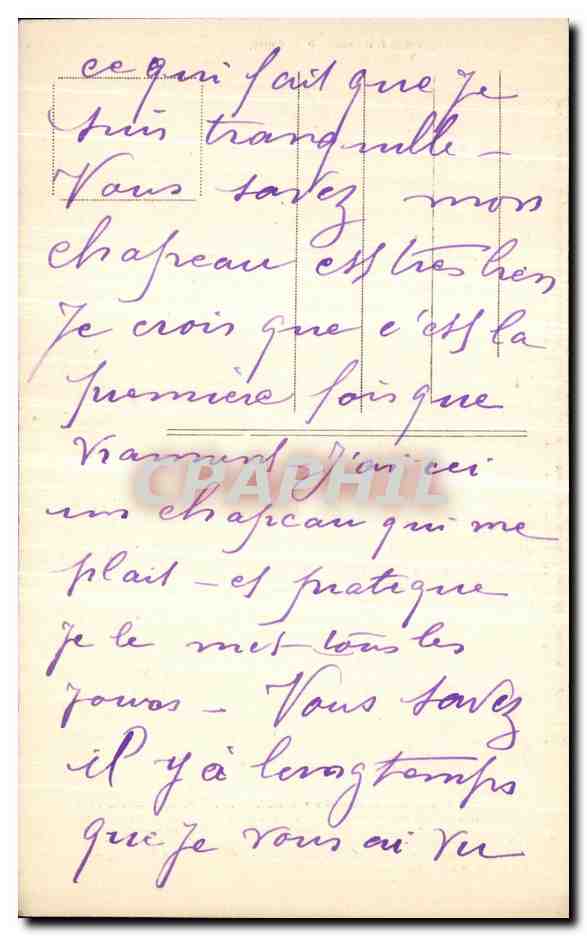 ce qui fait que je
suis tranquille -
Vous savez mon
chapeau est très bien
Je crois que c'est la
première fois que
vraiment j'ai eu
un chapeau qui me
plait - et pratique
je le met tous les
jours - Vous savez
il y à longtemps
que je vous ai vu
CPAPHIL